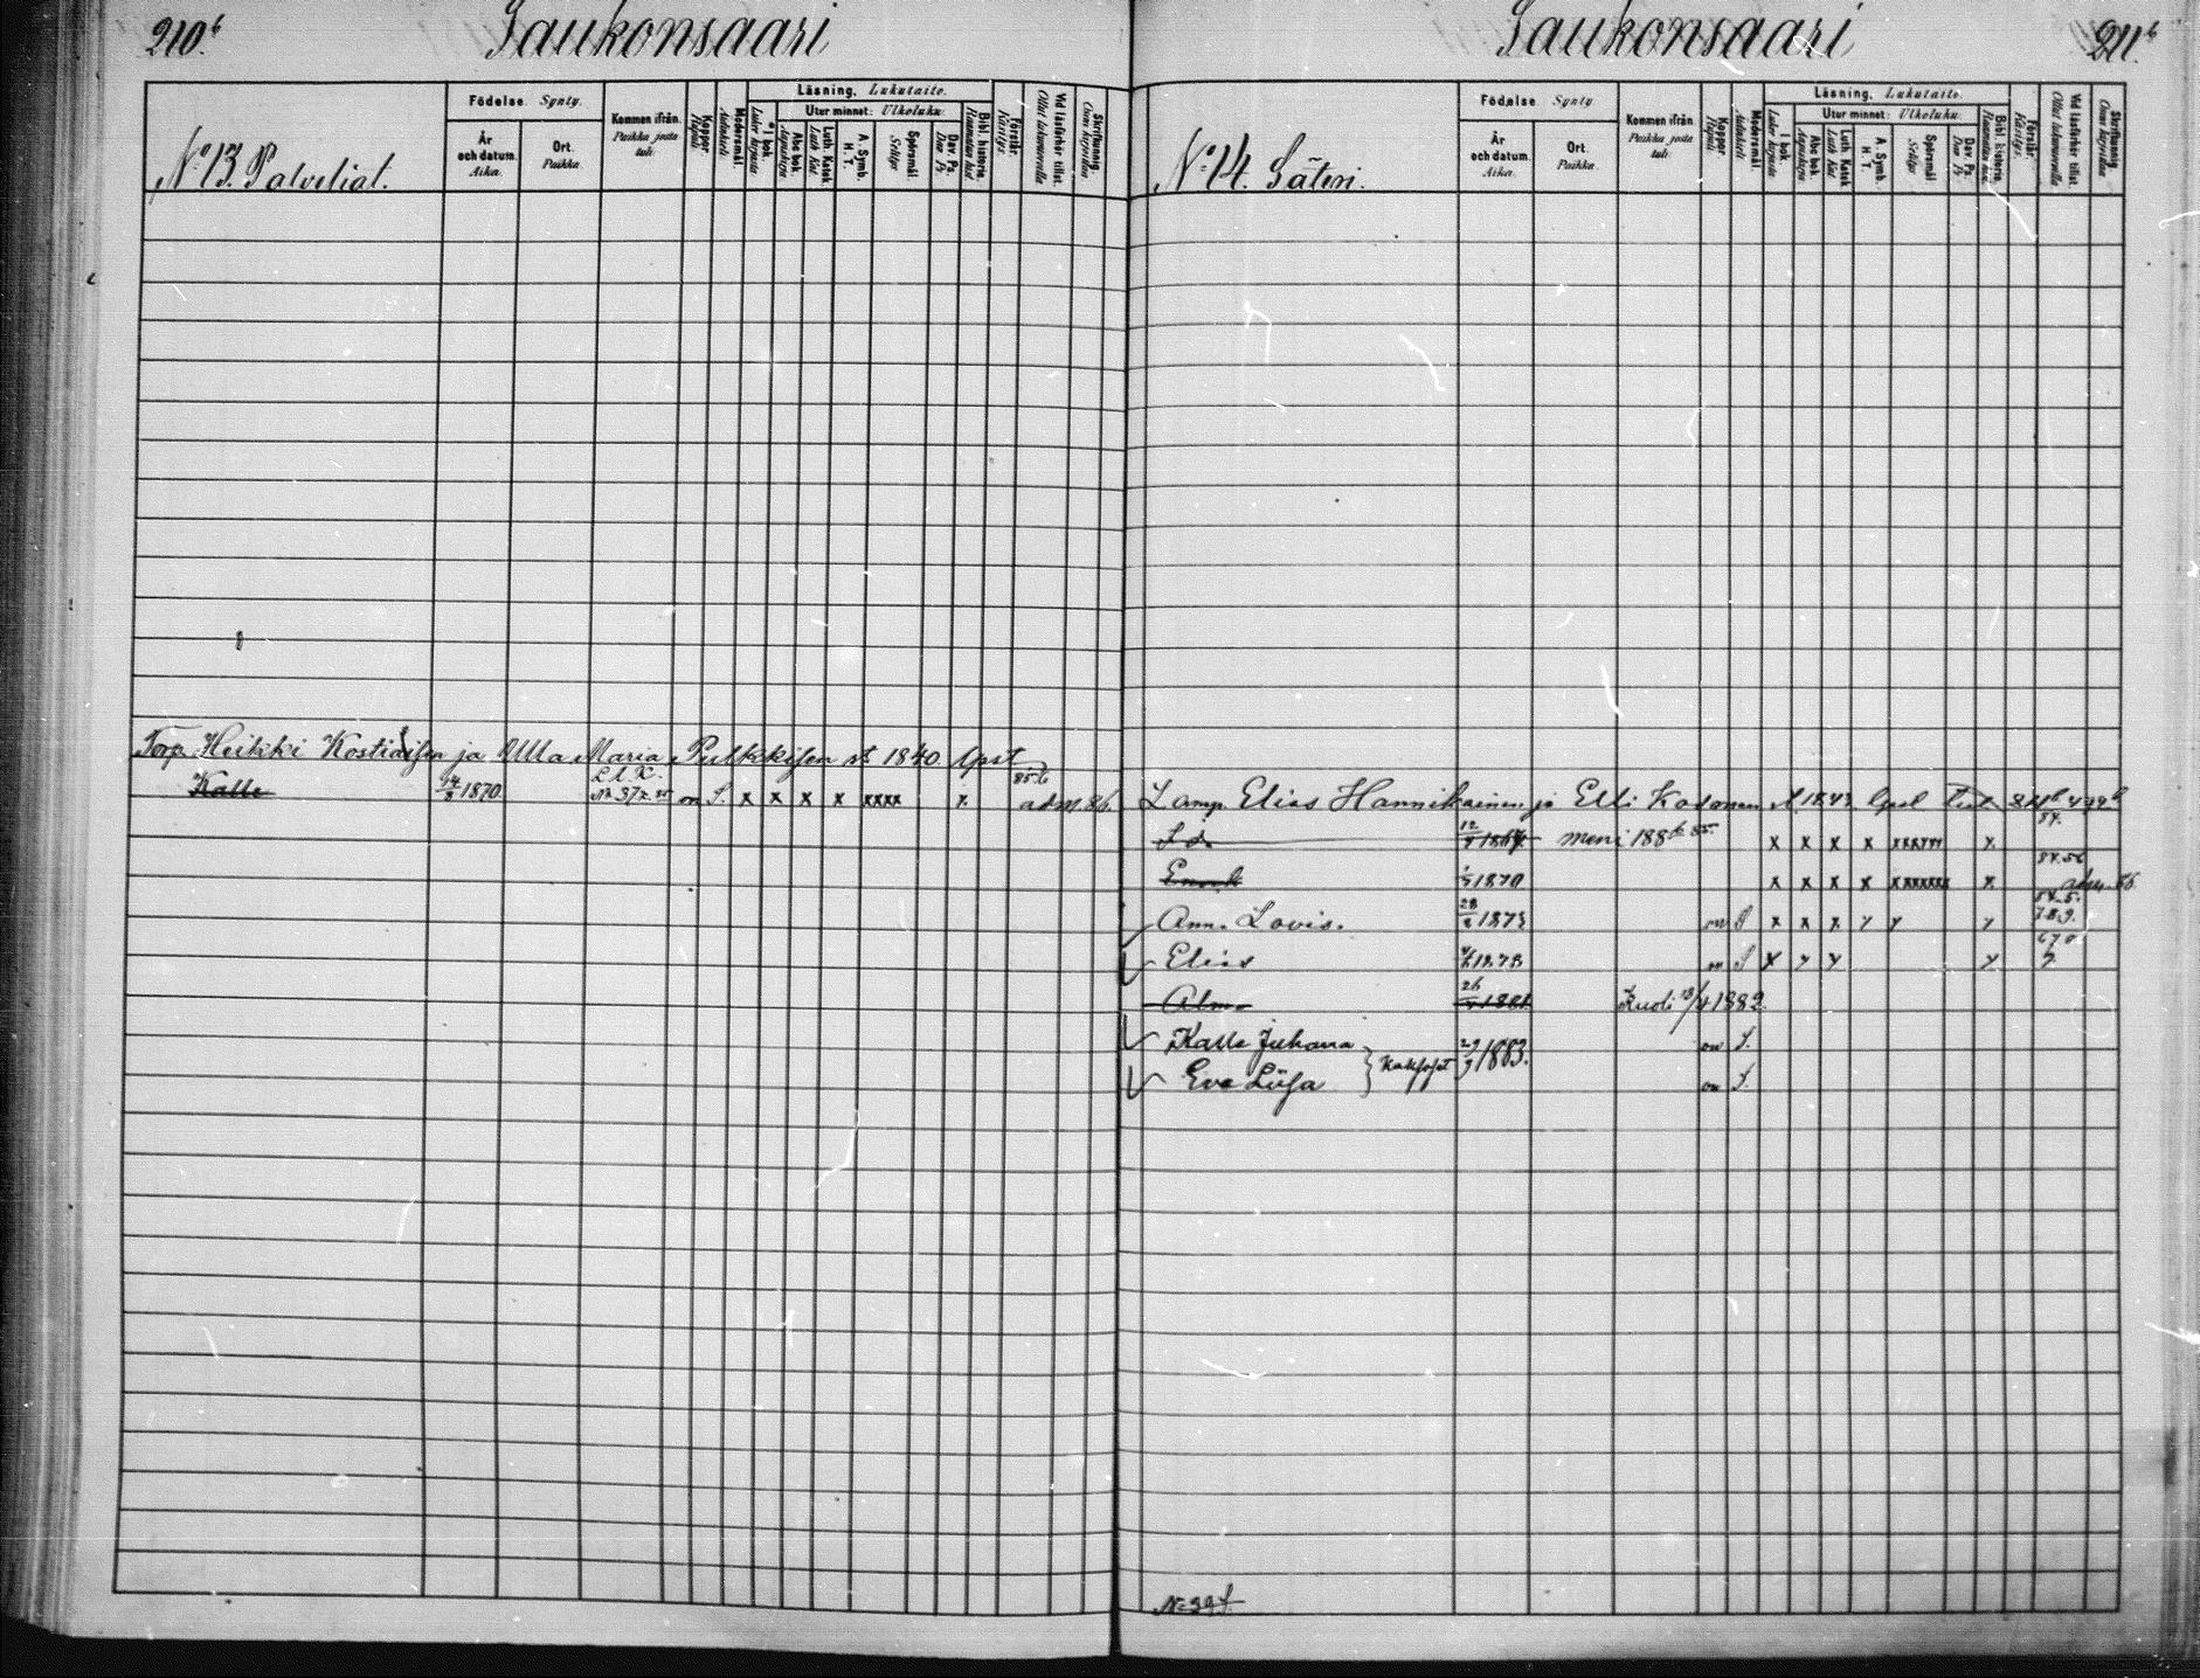 210.b
Saukonsaari
No 13. Palveliat.
Födelse. Synty.
År och datum. Aika.
Ort. Paikka.
Kommen ifrån. Paikka josta tuli.
Koppor. Rupuli
Modersmål. Äidinkieli
Läsning, Lukutaito.
I bok. Lukee kirjasta.
Utur minnet: Ulkoluku.
Abc bok. Aapiskirja
Luth. Katek. Luth Kat.
A. Symb. H. T.
Spörsmål Selitys
Dav. Ps. Dav Ps
Bibl. historia.
Förstår. Käsitys.
Vid läsförhör tillst. Ollut lukuvuorolla
Skrifkunnig. Osaa kirjoittaa
Torp. Heikki Kostiaisen ja Ulla Maria Pulkkisen st 1840. lapset
Kalle 14/8 1870 L.l.K. No 37 x. 85 on S. x x x x xxxx x. 85.6 adm. 86.
Saukonsaari
211.b
No 14. Säteri.
Födelse Synty
År och datum. Aika.
Ort. Paikka.
Kommen ifrån. Paikka josta tuli.
Koppor Rupuli
Modersmål. Äidinkieli
Läsning, Lukutaito.
I bok Lukee kirjasta
Utur minnet: Ulkoluku.
Abc bok. Aapiskirja
Luth. Katek Luth Kat
A. Symb. H. T.
Spörsmål Selitys
Dav. Ps. Dav Ps
Bibl. historia
Förstår. Käsitys.
Vid läsförhör tillst. Ollut lukuvuorolla
Skrifkunnig. Osaa kirjoittaa
Lamp. Elias Hannikainen ja Elli Kosonen
meni 188b 85. x x x x x. 84.
1870 x x x x xxxxxx x. adm. 86
Ann. Lovis. 28 on S x x x y y y 7.8.9.
Elias 1878 on S x y y y
Alma 26 1881 Kuoli 13/4 1882.
Kalle Juhana on S.
Kaksoset 29/9 1883.
Eva Liisa on S.
No 39